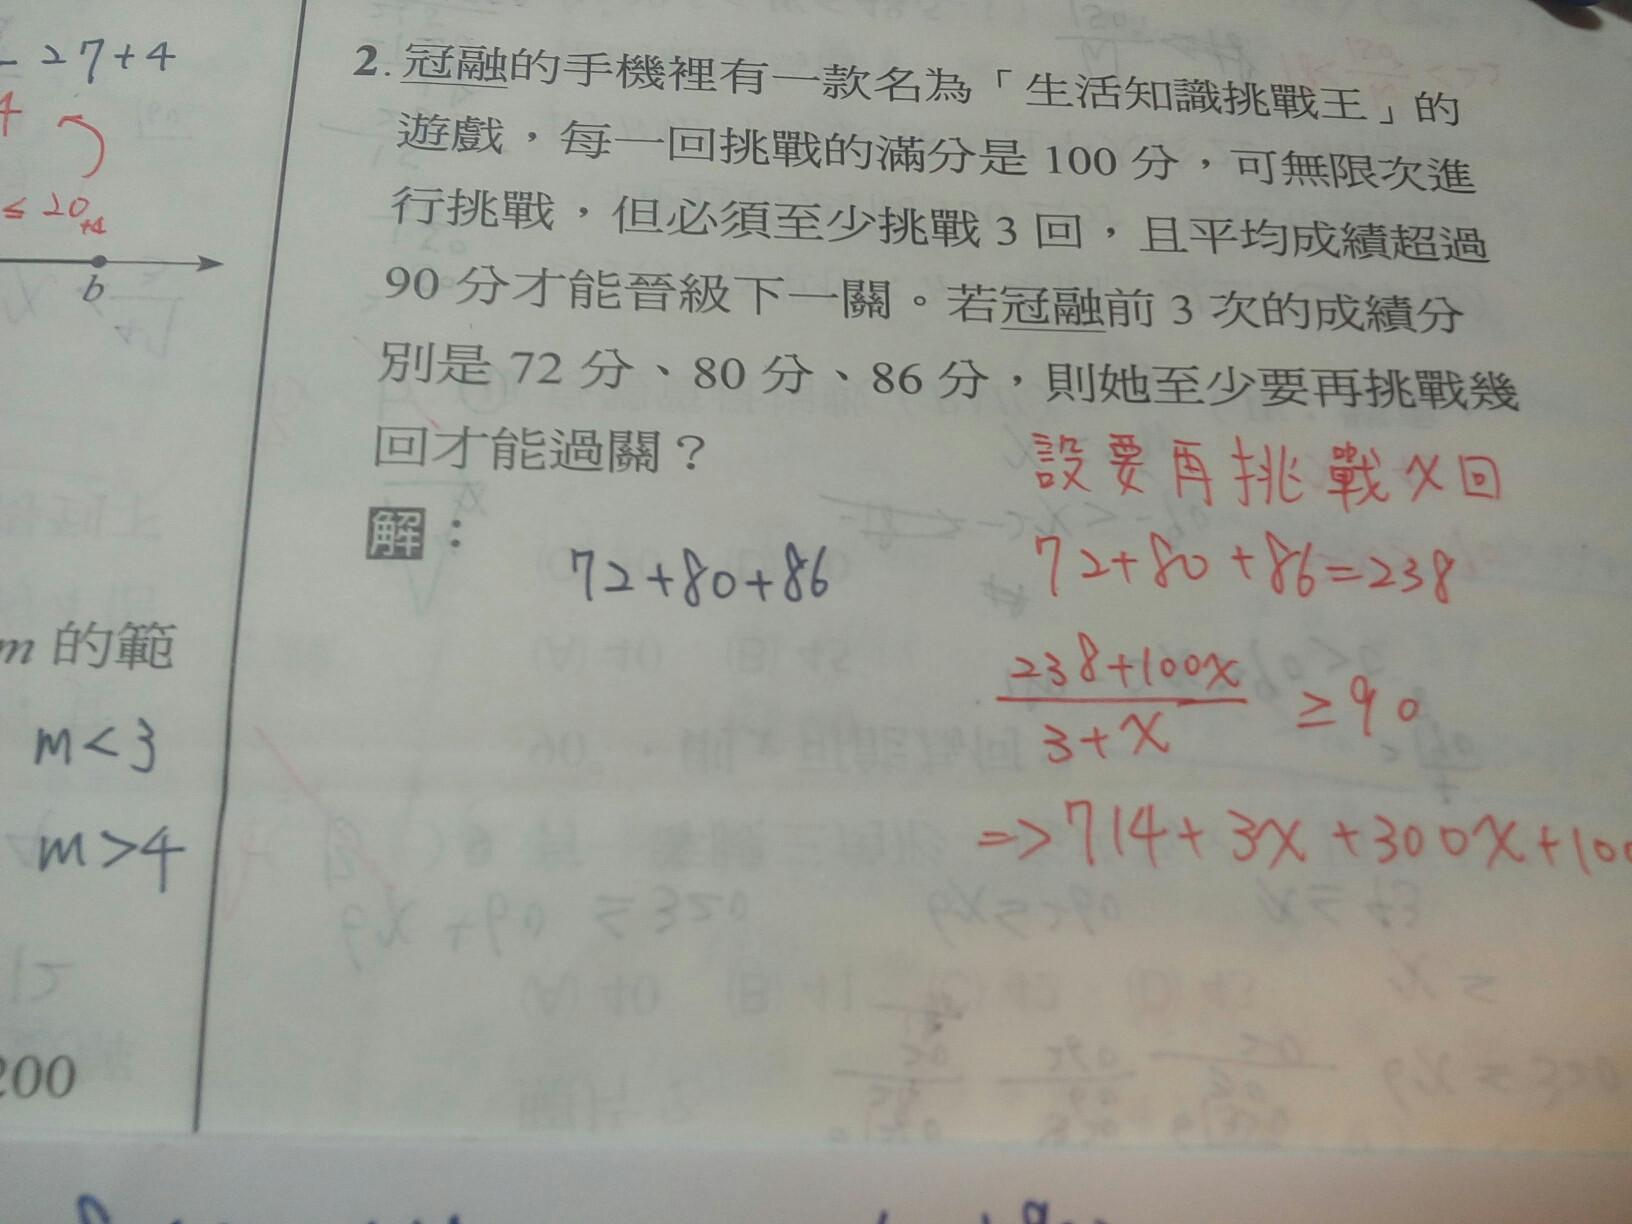 - 27+4
4
≤ 20+4
b
m 的範
m<3
m>4
200
2. 冠融的手機裡有一款名為「生活知識挑戰王」的
遊戲，每一回挑戰的滿分是 100 分，可無限次進
行挑戰，但必須至少挑戰 3 回，且平均成績超過
90 分才能晉級下一關。若冠融前 3 次的成績分
別是 72 分、80 分、86 分，則她至少要再挑戰幾
回才能過關？
設要再挑戰x回
解：
72+80+86
72+80+86=238
238+100x
3+x
≥90
=>714+3x+300x+100